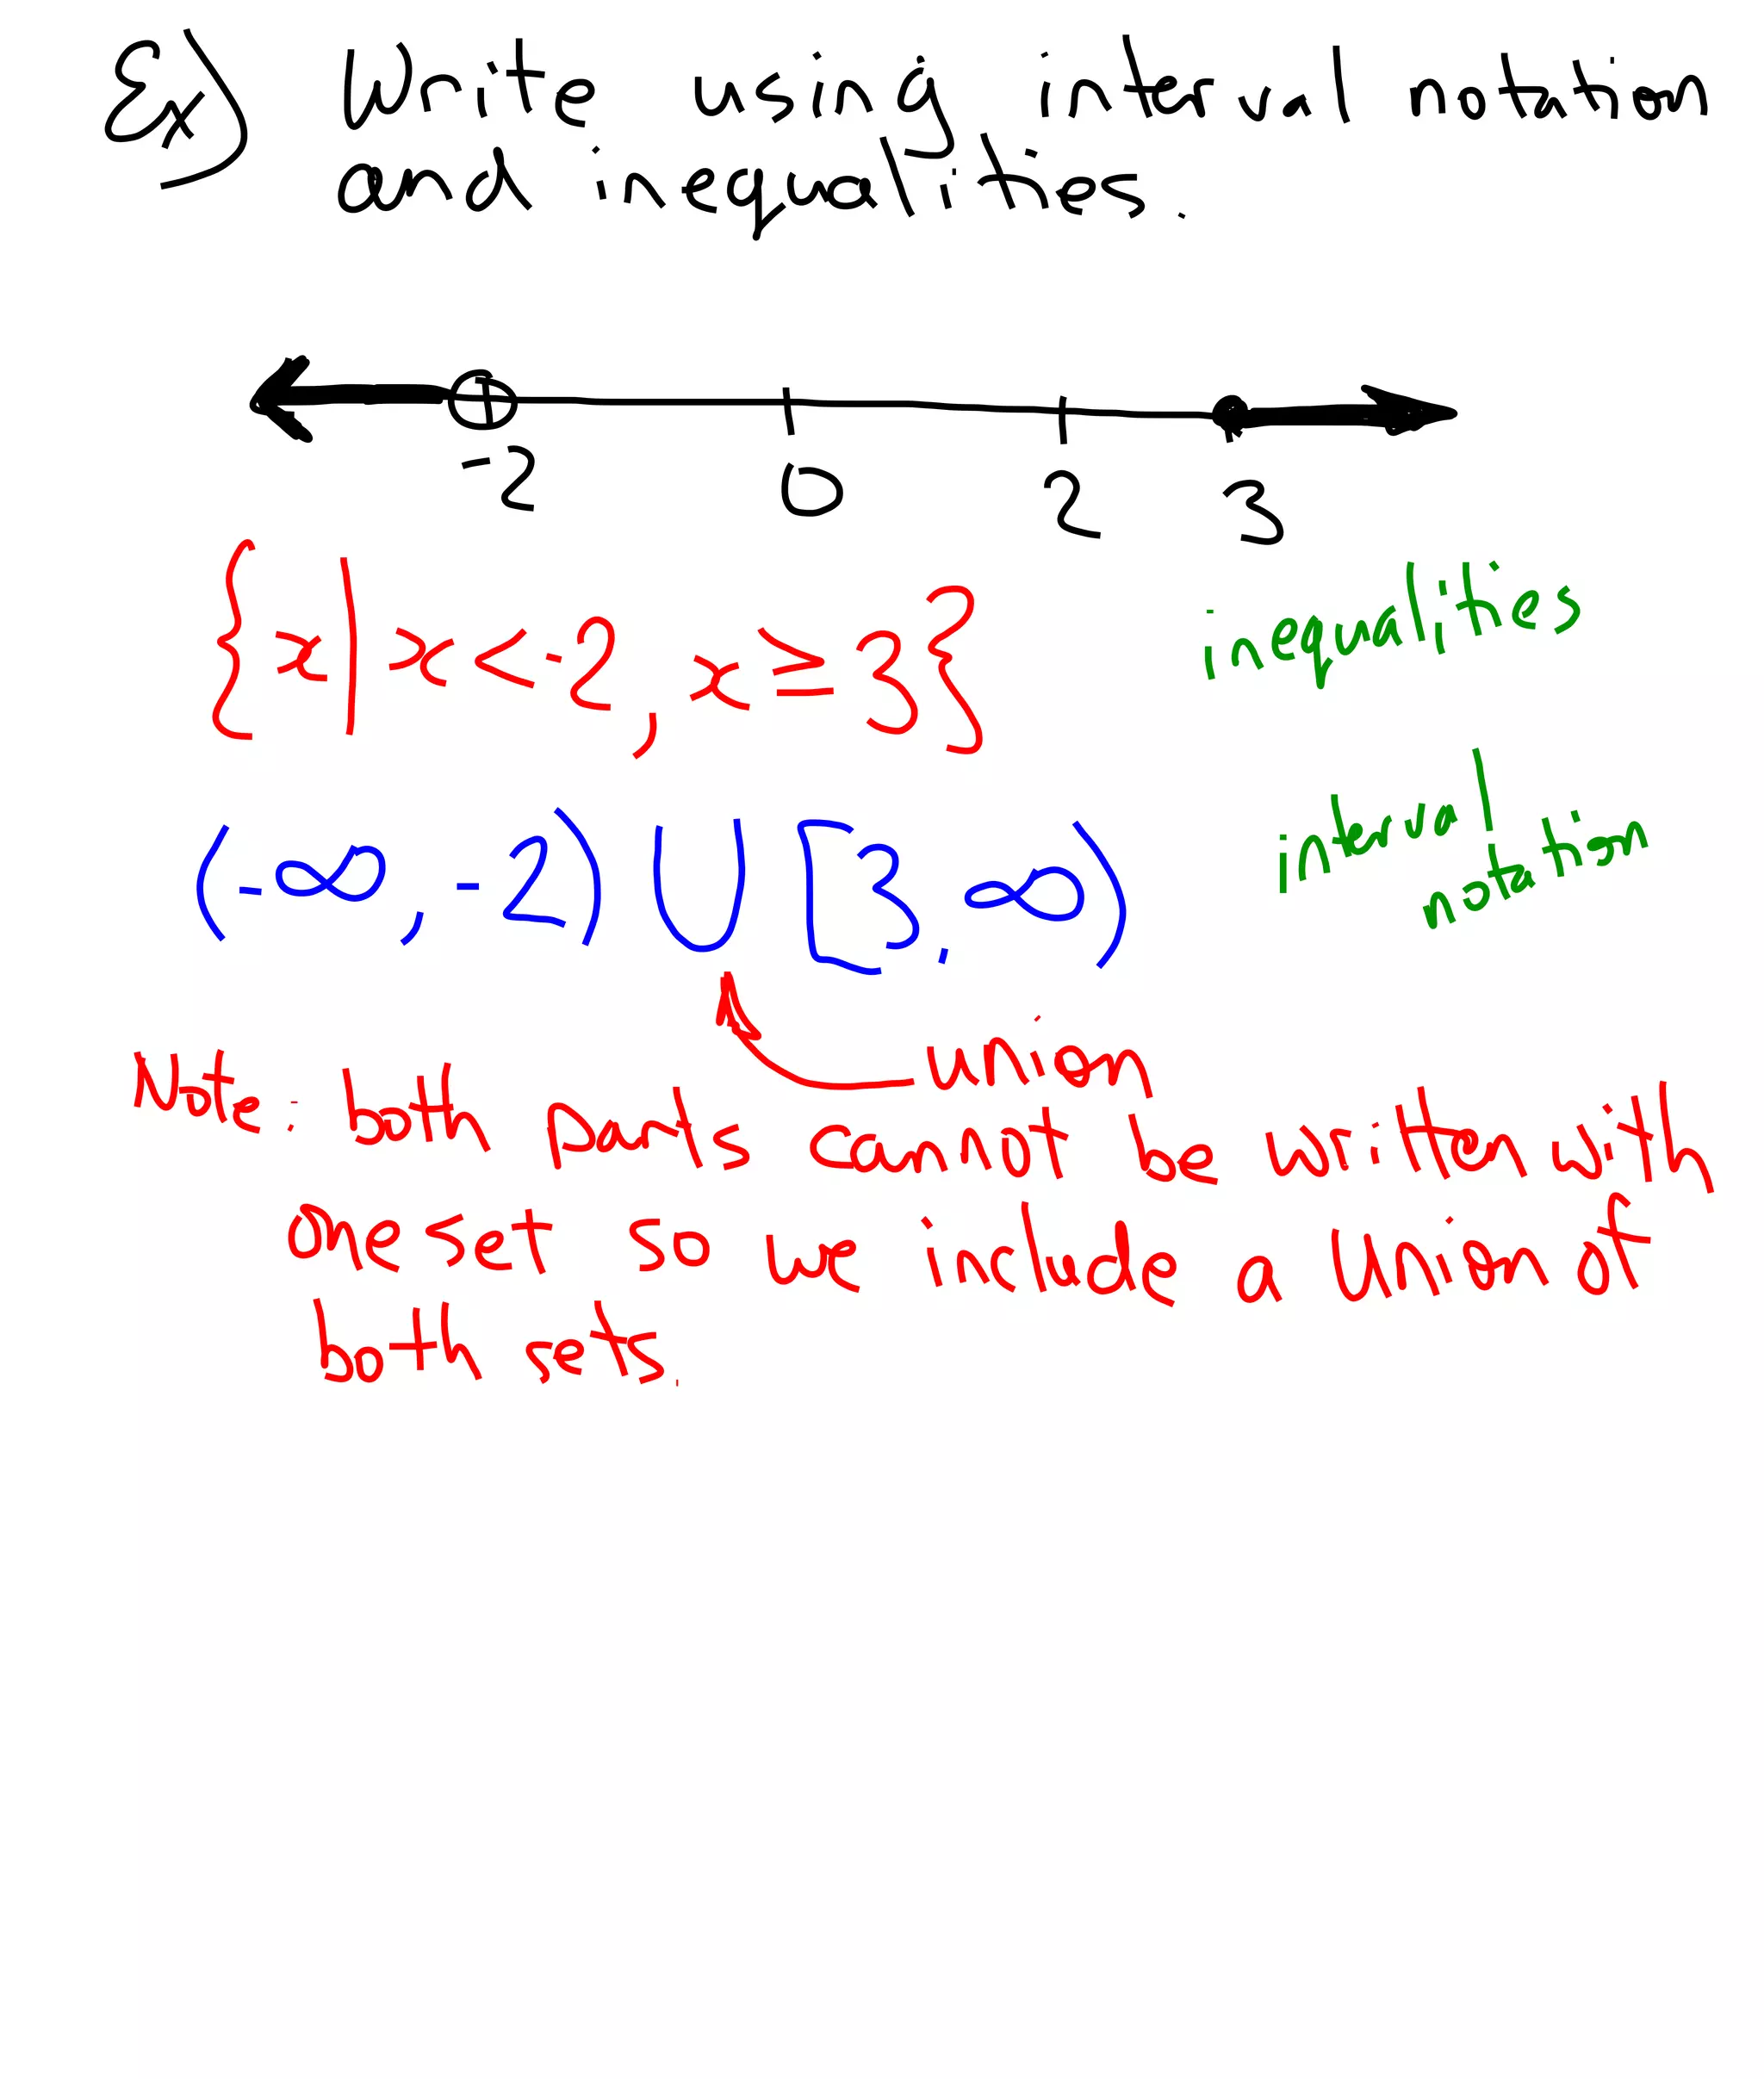 Ex) Write using interval notation
and inequalities.
-2 0 2 3
{x | x < -2, x ≥ 3}
inequalities
(-∞, -2) ∪ [3, ∞)
interval
notation
union
Note: both parts cannot be written with
one set so we include a union of
both sets.